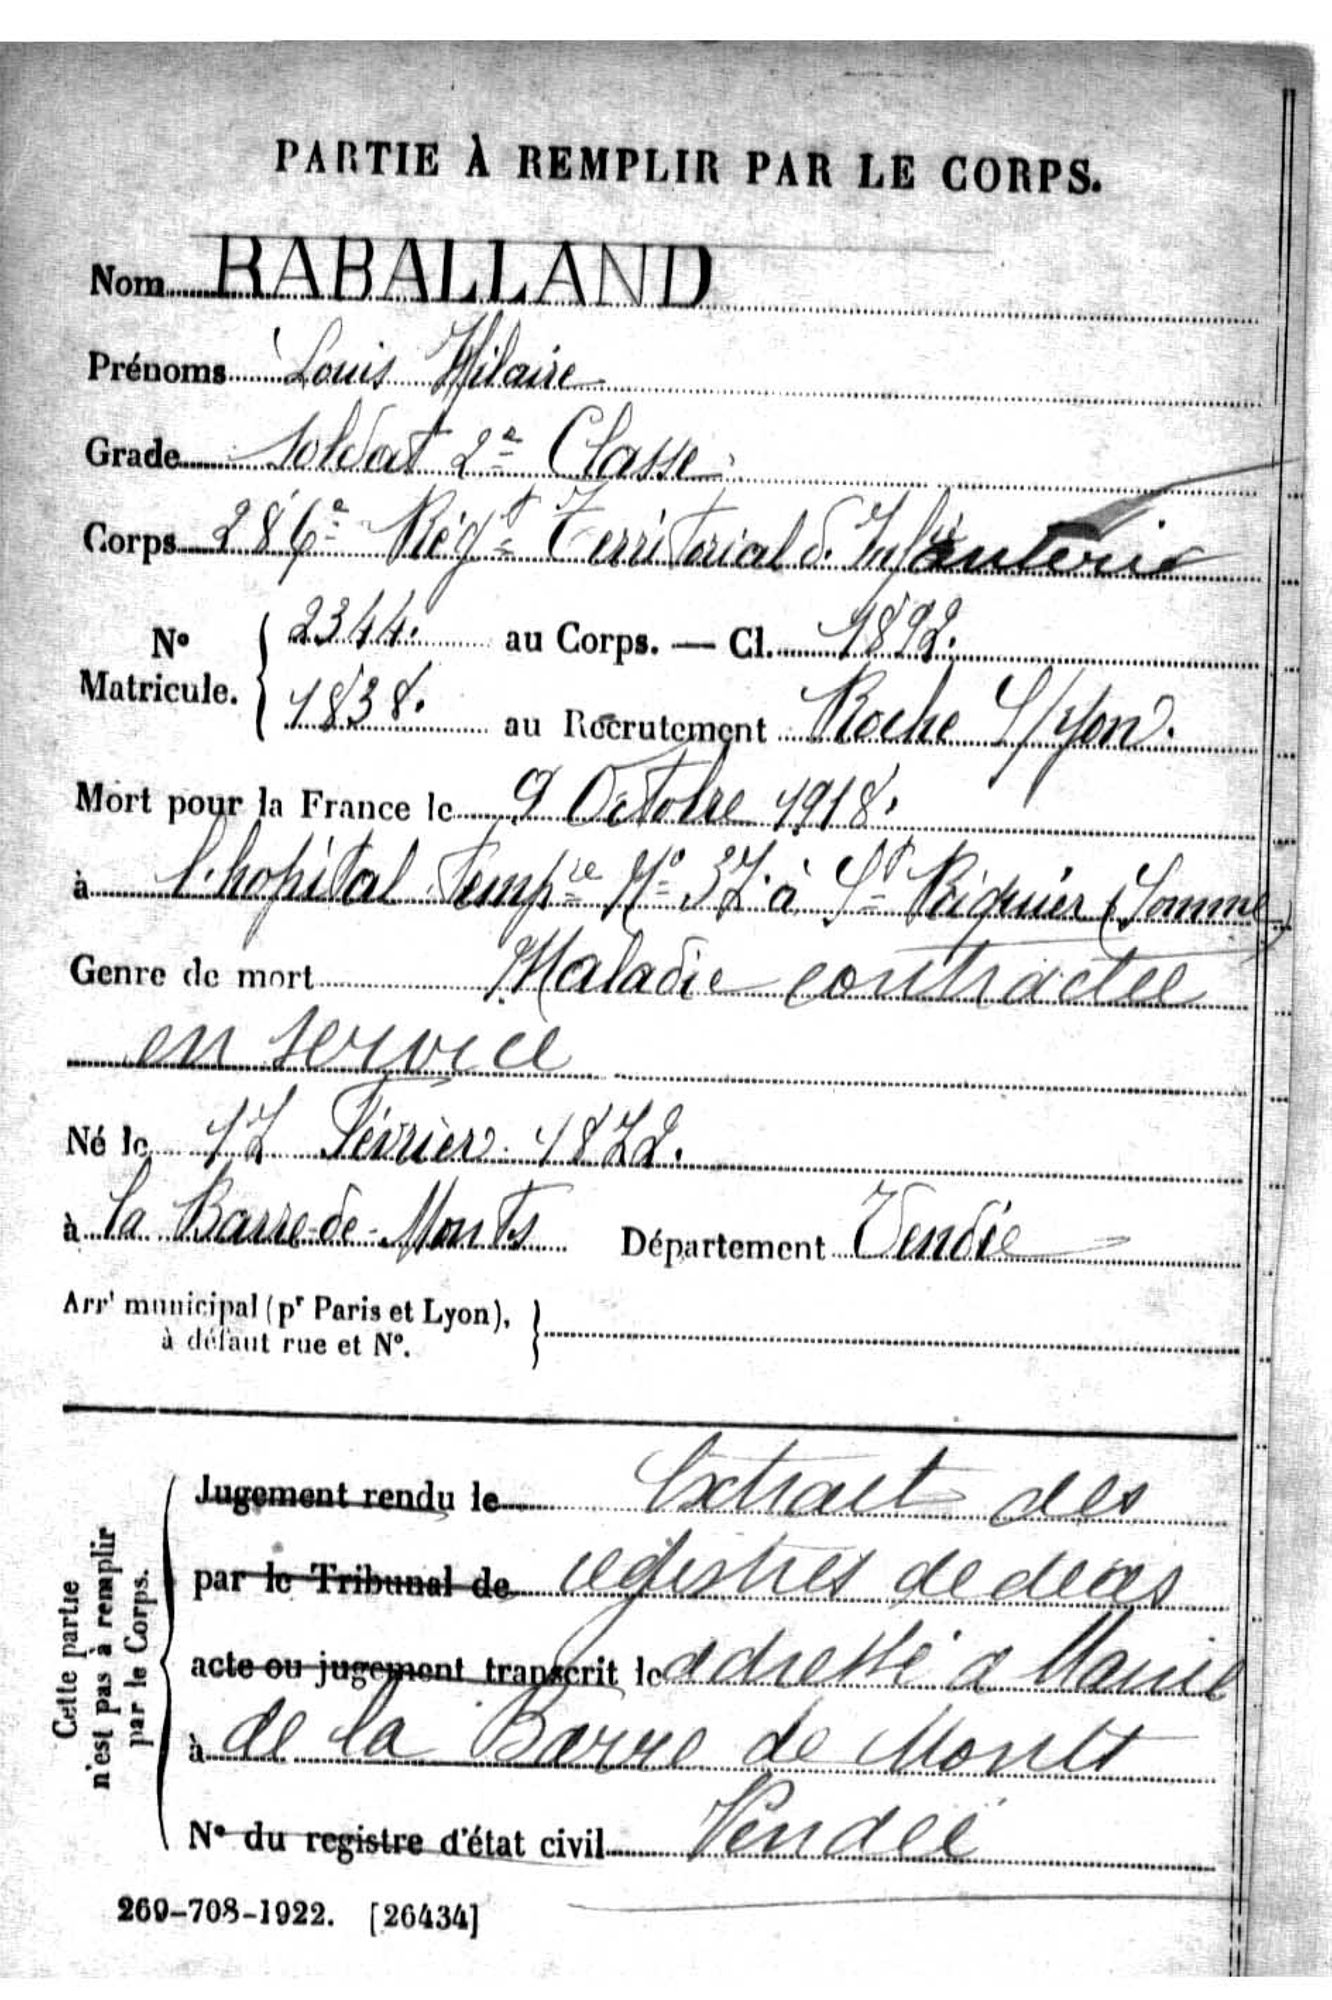 PARTIE À REMPLIR PAR LE CORPS.
Nom RABALLAND
Prénoms Louis Hilaire
Grade Soldat 2e Classe
Corps 286e Régt Territorial d'Infanterie
No Matricule. { 2344. au Corps. — Cl. 1892.
1838. au Recrutement Roche S/yon.
Mort pour la France le 9 Octobre 1918.
à l'hopital Tempre No 37 à St Riquier (Somme)
Genre de mort Maladie contractee
en service
Né le 17 Février 1872.
à la Barre-de-Monts Département Vendée
Arrt municipal (pr Paris et Lyon), }
à défaut rue et No.
Cette partie
n'est pas à remplir
par le Corps.
Jugement rendu le Extrait des
par le Tribunal de registres de deces
acte ou jugement transcrit le adressé a Mairie
à de la Barre de Monts
No du registre d'état civil Vendee
269-708-1922. [26434]